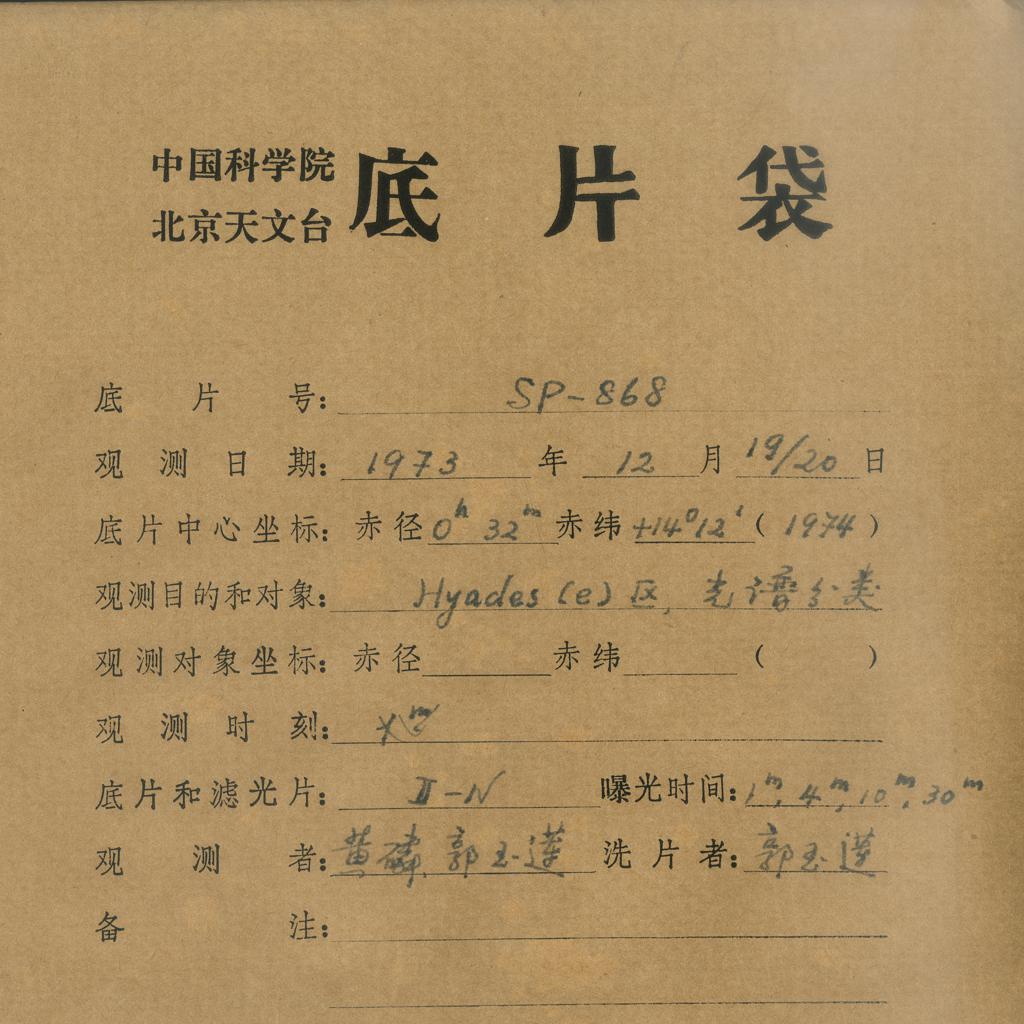 中国科学院
北京天文台
底片袋
底片号: SP-868
观测日期: 1973 年 12 月 19/20 日
底片中心坐标: 赤径 0ʰ 32ᵐ 赤纬 +14°12′ ( 1974 )
观测目的和对象: Hyades (e) 区, 光谱分类
观测对象坐标: 赤径 赤纬 ( )
观测时刻:
底片和滤光片: II-N 曝光时间: 1ᵐ, 4ᵐ, 10ᵐ, 30ᵐ
观测者: 黄磷 郭玉莲 洗片者: 郭玉莲
备注: